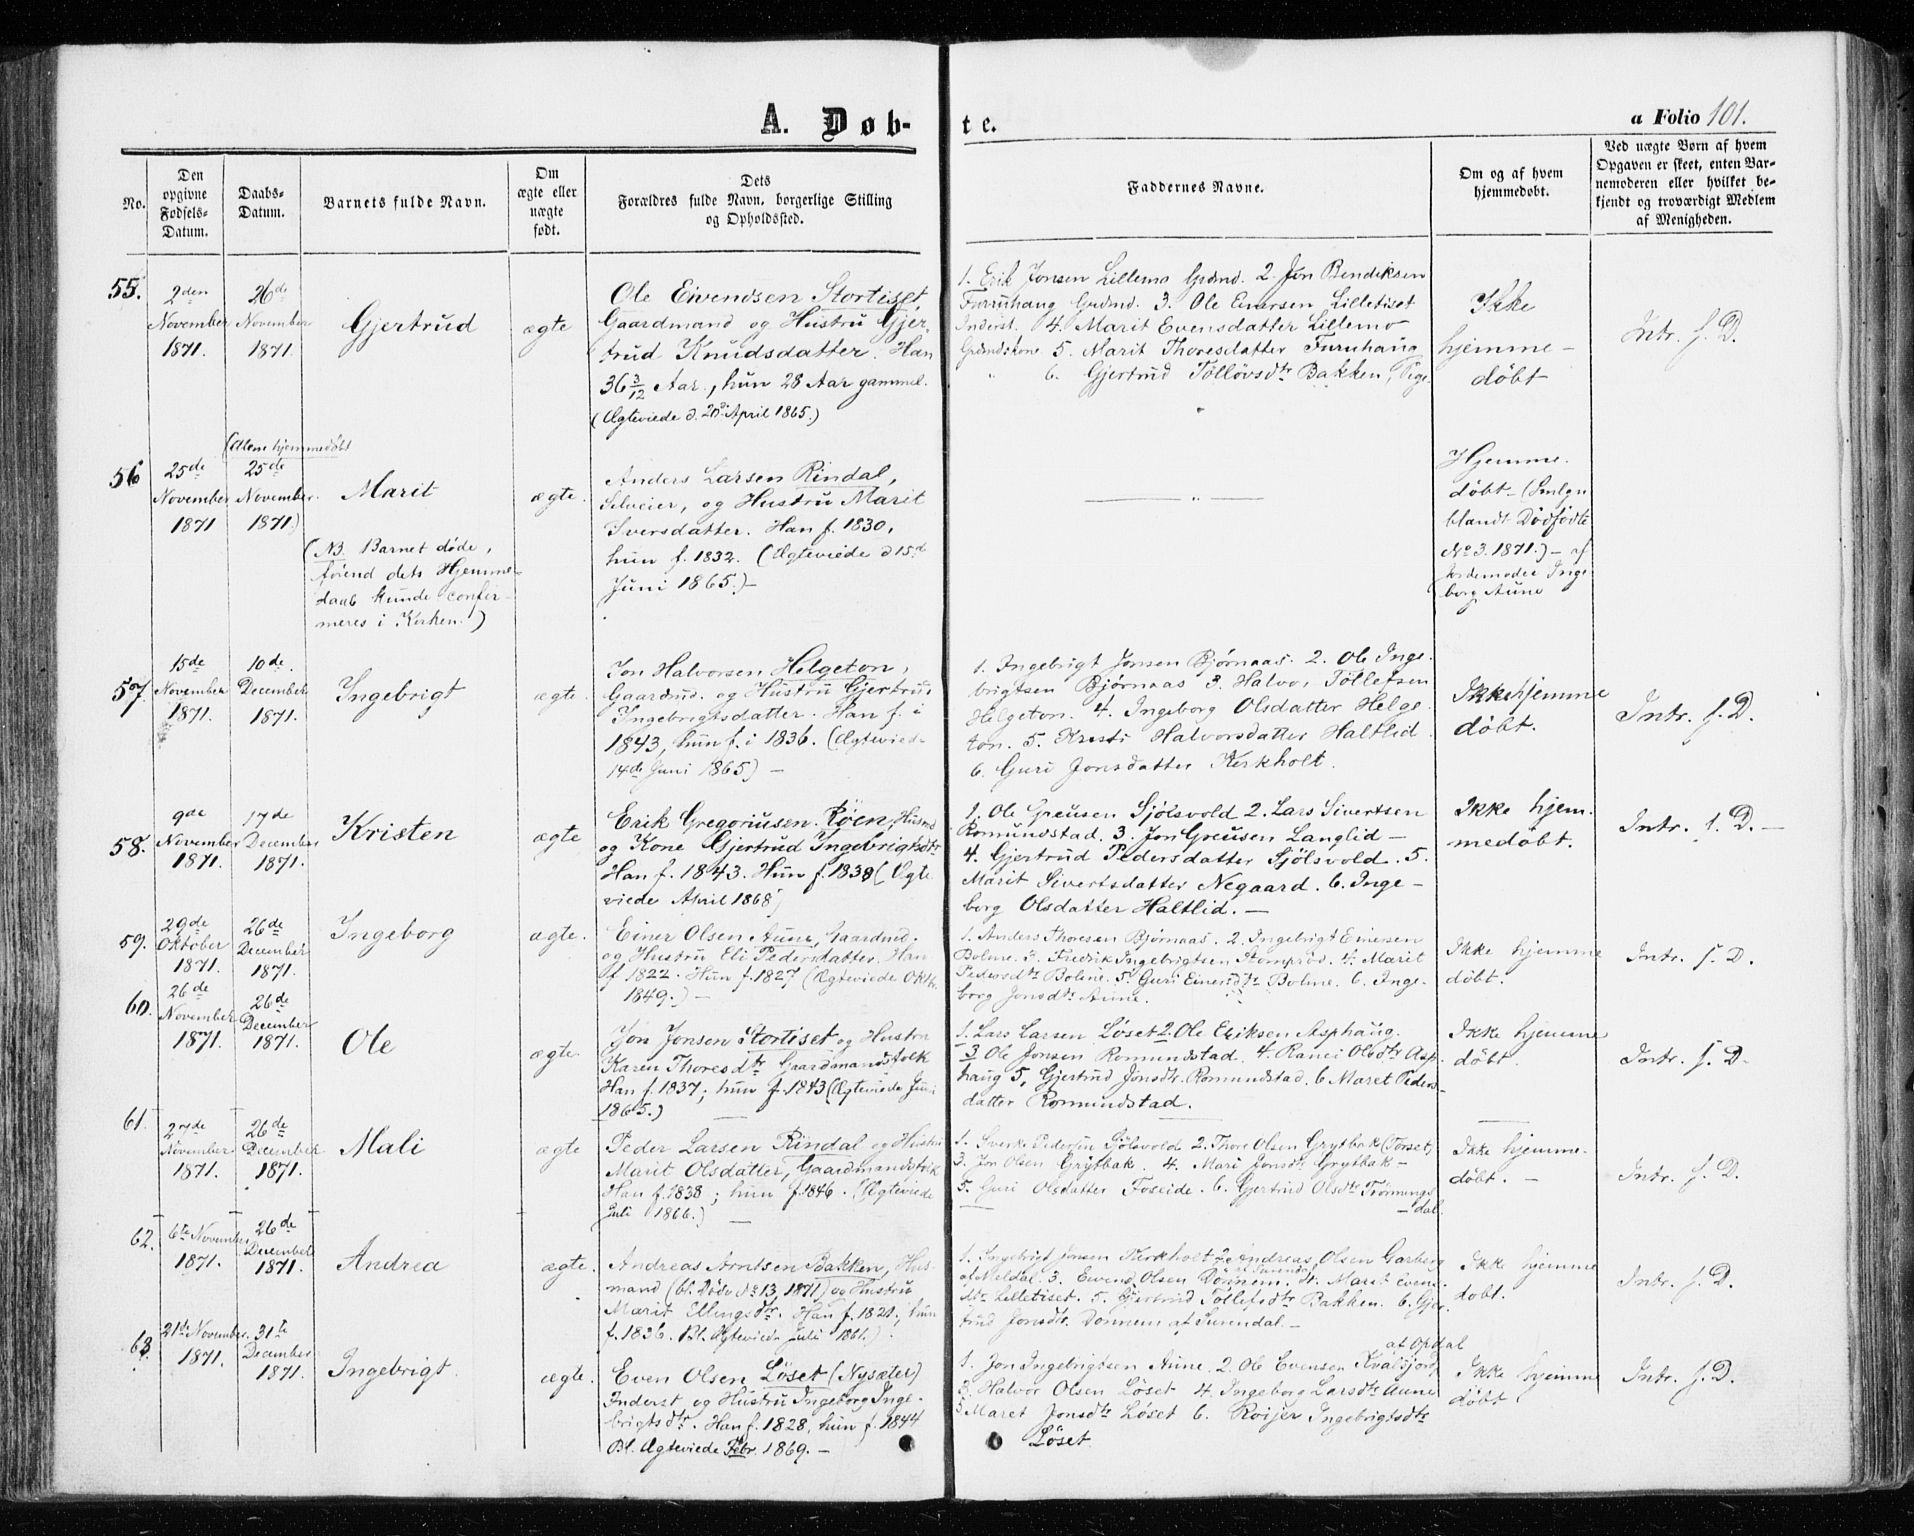 A. Døb-
te.
a Folio 101.
No.
Den opgivne Fødsels-Datum.
Daabs-Datum.
Barnets fulde Navn.
Om ægte eller uægte født.
Dets
Forældres fulde Navn, borgerlige Stilling
og Opholdssted.
Faddernes Navne.
Om og af hvem
hjemmedøbt.
Ved uægte Børn af hvem
Opgaven er skeet, enten Bar-
nemoderen eller hvilket be-
kjendt og troværdigt Medlem
af Menigheden.
55.
2den
November
1871.
26de
November
1871.
Gjertrud
ægte
Ole Eivendsen Stortiset,
Gaardmand og Hustru Gjer-
trud Knudsdatter. Han
36 3/12 Aar, hun 28 Aar gammel.
(Ægteviede d. April 1865.)
1. Erik Jonsen Lillemo Grdmd. 2. Jon Bendiksen
Furuhaug Grdmd. 3. Ole Enersen Lilletiset
Inderst. 4. Marit Evensdatter Lillemo
Grdmdskone 5. Marit Thoresdatter Furuhaug
" 6. Gjertrud Tølløvsdtr Bakken, Pige.
Ikke
hjemme-
døbt
Intr. f. D.
56
25de
November
1871
(Alene hjemmedøbt
25de
November.
1871.)
Marit
(NB. Barnet døde,
førend dets Hjemme-
daab kunde confir-
meres i Kirken.)
ægte.
Anders Larsen Rindal,
Selveier, og Hustru Marit
Iversdatter. Han f. 1830,
hun f. 1832. (Ægteviede d 15d
Juni 1865.)-
"
Hjemme-
døbt- (Smlgn
blandt Dødfødte
No 3. 1871.) - af
Jordemoder Inge-
borg Aune
57.
15de
November
1871.
10de
December
1871.
Ingebrigt
ægte.
Jon Halvorsen Helgeton,
Gaardmd. og Hustru Gjertrud
Ingebrigtsdatter. Han f. i
1843, hun f. i 1836. (Ægteviede
14de Juni 1865) -
1. Ingebrigt Jonsen Bjørnaas. 2. Ole Inge-
brigtsen Bjørnaas 3. Halvor Tøllefsen
Helgeton. 4. Ingeborg Olsdatter Helge-
ton. 5. Kristi Halvorsdatter Haltlid.
6. Guri Jonsdatter Kirkholt.
Ikke hjemme
døbt.
Intr. f. D.
58.
9de
November
1871.
17de
December
1871.
Kristen
ægte
Erik Gregoriusen Røen, Husmd
og Kone Gjertrud Ingebrigtsdtr
Han f. 1843. Hun f. 1838 (Ægte
viede April 1868)
1. Ole Greusen Sjølsvold 2. Lars Sivertsen
Romundstad. 3. Jon Greusen Langlid -
4. Gjertrud Pedersdatter Sjølsvold. 5.
Marit Sivertsdatter Negaard. 6. Inge-
borg Olsdatter Haltlid. -
Ikke hjem-
medøbt.
Intr. f. D. -
59.
29de
Oktober
1871.
26de
December
1871.
Ingeborg
ægte.
Einer Olsen Aune, Gaardmd.
og Hustru Eli Pedersdatter. Han
f. 1822. Hun f. 1827 (Ægteviede Oktbr.
1849.) -
1. Anders Thoresen Bjørnaas. 2. Ingebrigt Einersen
Bolme. 3. Fredrik Ingebrigtsen Stomprød. 4. Marit
Pedersdtr Bolme. 5. Guri Einersdtr Bolme. 6. Inge-
borg Jonsdtr Aune.
Ikke hjemme
døbt.
Intr. f. D.
60.
26de
November
1871.
26de
December
1871.
Ole
ægte.
Jon Jonsen Stortiset og Hustru
Karen Thoresdtr Gaardmandsfolk
Han f. 1837; hun f. 1843 (Ægteviede Juni
1865.)
1. Lars Larsen Løset 2. Ole Eriksen Asphaug.
3 Ole Jonsen Romundstad. 4. Ranei Olsdtr Asp-
haug 5, Gjertrud Jonsdtr. Romundstad. 6 Maret Peders-
datter Romundstad.
Ikke hjemme
døbt.
Intr. f. D.
61.
27de
November
1871.
26de
December
1871.
Mali
ægte
Peder Larsen Rindal og Hustru
Marit Olsdatter, Gaardmandsfolk
Han f. 1838; hun f. 1846. (Ægteviede
Juli 1866.)
1. Sverke Pedersen Sjølsvold 2. Thore Olsen Grytbak (Torset)
3. Jon Olsen Grytbak. 4. Mari Jonsdtr Grytbak -
5. Guri Olsdatter Foseide. 6. Gjertrud Olsdtr Trønnings
- dal.
Ikke hjemme-
døbt. -
Intr. f. D.
62.
6te November
1871.
26de
December
1871.
Andrea
ægte.
Andreas Arntsen Bakken, Hus-
mand (bl. Døde No 13, 1871) og Hustru
Marit Ellingsdtr. Han f. 1820; hun
f. 1836. Bl. Ægteviede Juli 1861.)
1. Ingebrigt Jonsen Kirkholt 2. Andreas Olsen Garberg
af Meldal. 3. Eivend Olsen Dønnem af Surendal. 4. Marit Evens-
dtr Lilletiset. 5. Gjertrud Tøllefsdtr Bakken. 6. Gjer-
trud Jonsdtr. Dønnem af Surendal. -
Ikke hjemme
døbt.
Intr. f. D.
63.
21de November.
1871.
31te
December
1871.
Ingebrigt.
ægte.
Even Olsen Løset (Nysæter)
Inderst og Hustru Ingeborg Inge-
brigtsdtr. Han f. 1828, hun f. 1844
Bl. Ægteviede Febr. 1869. -
af Opdal
1. Jon Ingebrigtsen Aune. 2. Ole Evensen Kvalsjord,
3. Halvor Olsen Løset 4. Ingeborg Larsdtr Aune
5 Maret Jonsdtr Løset 6. Roijer Ingebrigtsdtr
Løset
Ikke hjemme
døbt.
Intr. f. D.